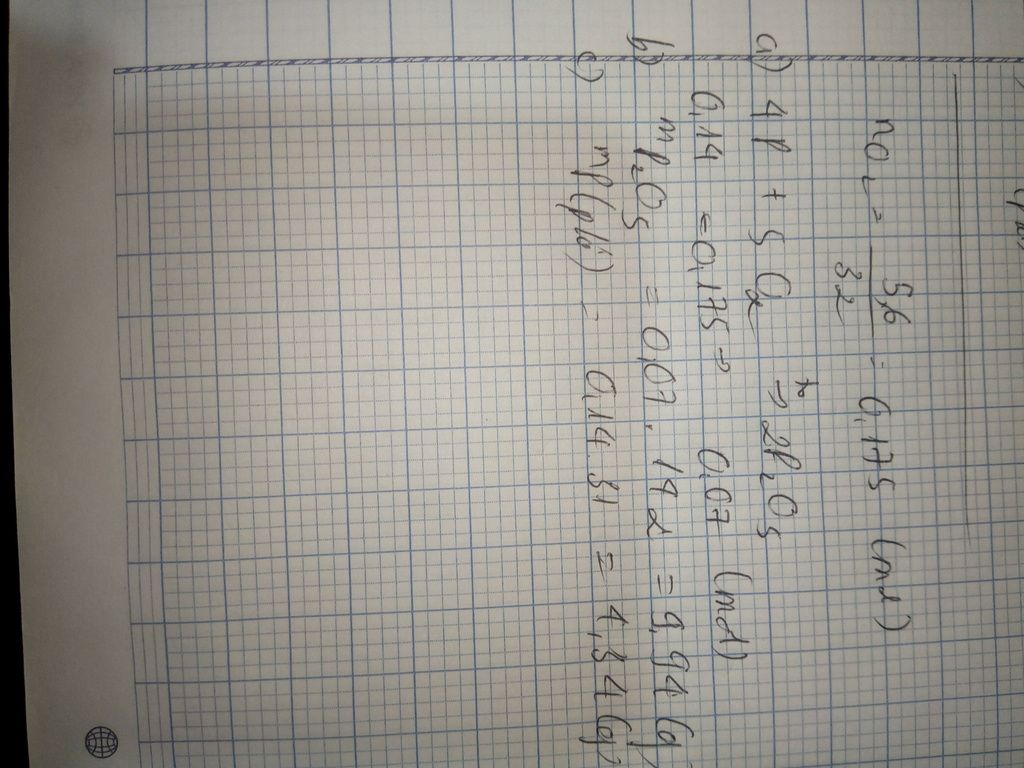 nO₂ = 5,6/32 = 0,175 (mol)
a) 4P + 5O₂ t° → 2P₂O₅
0,14 ← 0,175 → 0,07 (mol)
b) mP₂O₅ = 0,07 . 142 = 9,94 (g)
c) mP(pứ) = 0,14 . 31 = 4,34 (g)